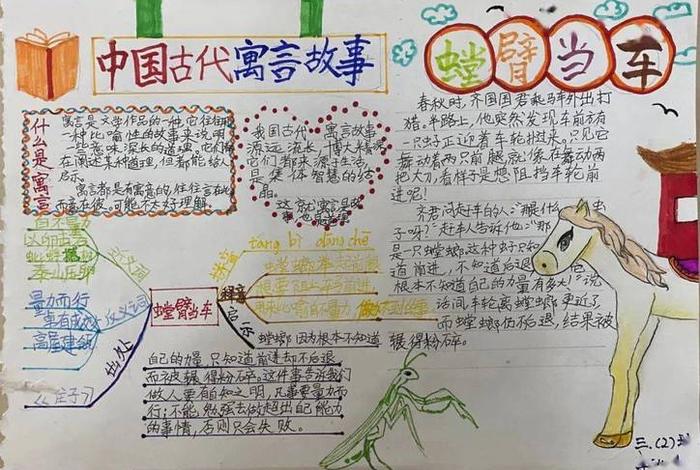 中国古代寓言故事
什么是寓言
寓言是文学作品的一种,它往往用
一种比喻性的故事来说明
一些意味深长的道理,它们
在阐述某种道理,但都能给人
启示。
寓言都是有寓意的,往往言在此
而意在彼,可能不太好理解。
我国古代 寓言故事
源远流长,博大精深
它们都来源于生活,
是集体智慧的结
晶。
螳臂当车
春秋时,齐国国君乘马车外出打
猎。半路上,他突然发现车前方有
一只虫正迎着车轮扑过来。只见它
舞动着两只前
把大刀,看样子是想阻挡车轮前
进呢!
齐君问赶车的人:
子呀?"赶车人告诉他:"那
是一只螳螂,这种虫只知
道前进,,不知道后退
根本不知道自己的力量有多大!"说
话间,车轮离螳螂更近了,
而螳螂仍不后退,结果被
辗得粉碎。
自不量力
蚍蜉撼
泰山压卵
近义词
量力而行
高屋建瓴
反义词
出处
《庄子》
螳臂当车
拼音
táng bì dāng chē
释义
螳螂举起前
启示
螳螂因为根本不知道
自己的力量,只知道前进却不后退
而被辗得粉碎。这件事告诉我们
做人要有自知之明,凡事要量力而
行;不能勉强去做超出自己能力
的事情,否则只会失败。
三.(2)